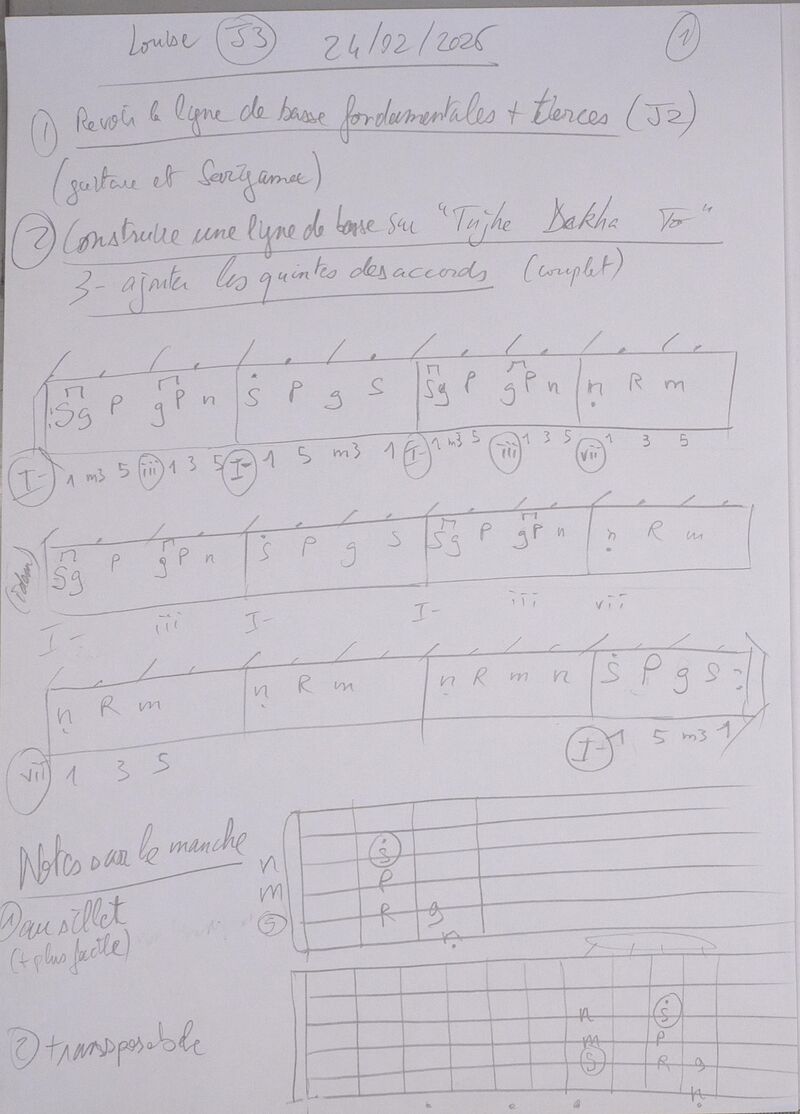 Louise J3 24/02/2026 1
1 Revoir la ligne de basse fondamentales + tierces (J2)
(guitare et Sarigama)
2 Construire une ligne de basse sur "Tujhe Dekha To"
3- ajouter les quintes des accords (couplet)
Sg P gP n Ṡ P g S Sg P gP n ṇ R m
I- 1 m3 5 iii 1 3 5 I- 1 5 m3 1 I- 1 m3 5 iii 1 3 5 vii 1 3 5
(idem) Sg P gP n Ṡ P g S Sg P gP n ṇ R m
I- iii I- I- iii vii
ṇ R m ṇ R m ṇ R m n Ṡ P g S
vii 1 3 5 I- 1 5 m3 1
Notes sur le manche
1 au sillet
(+ plus facile)
n Ṡ
m P
S R g
ṇ
2 transposable
n Ṡ
m P
S R g
ṇ